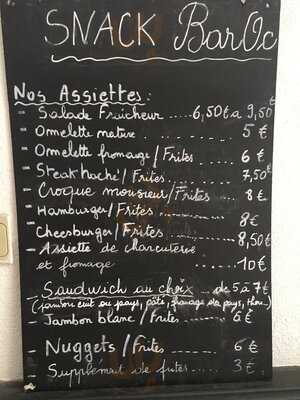 SNACK BarOc
Nos Assiettes :
- Salade Fraîcheur ..... 6,50€ à 9,50€
- Omelette nature ........ 5 €
- Omelette fromage / Frites .... 6 €
- Steak haché / Frites ...... 7,50€
- Croque monsieur / Frites .... 8 €
- Hamburger / Frites ........ 8€
- Cheeseburger / Frites ....... 8,50€
- Assiette de charcuterie
et fromage ........ 10€
Sandwich au choix .. de 5 à 7€
(jambon cuit ou pays, pâté, fromage de pays, thon..)
- Jambon blanc / Frites .... 6 €
Nuggets / Frites ..... 6 €
Supplément de frites .... 3 €